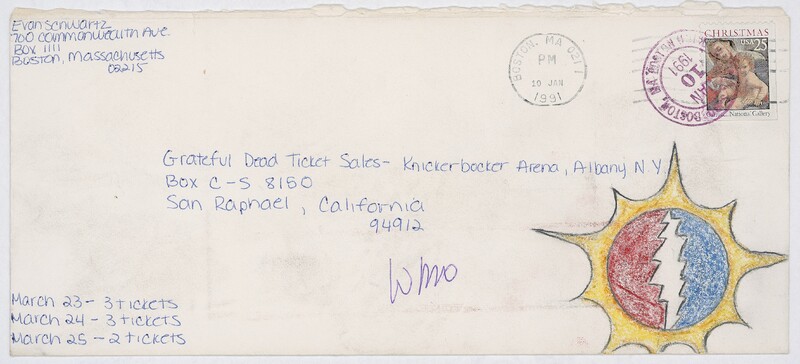 Evan Schwartz
700 Commonwealth Ave.
Box 1111
Boston, Massachusetts
02215
BOSTON, MA 021
PM
10 JAN
1991
BOSTON, MA
JAN
10
1991
CHRISTMAS
USA 25
National Gallery
Grateful Dead Ticket Sales- Knickerbocker Arena, Albany N.Y.
Box C-S 8150
San Raphael, California
94912
March 23 - 3 tickets
March 24 - 3 tickets
March 25 - 2 tickets